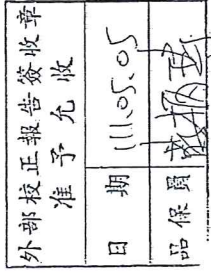 外部校正報告簽收章
准予允收
日期 111.05.05
品保員